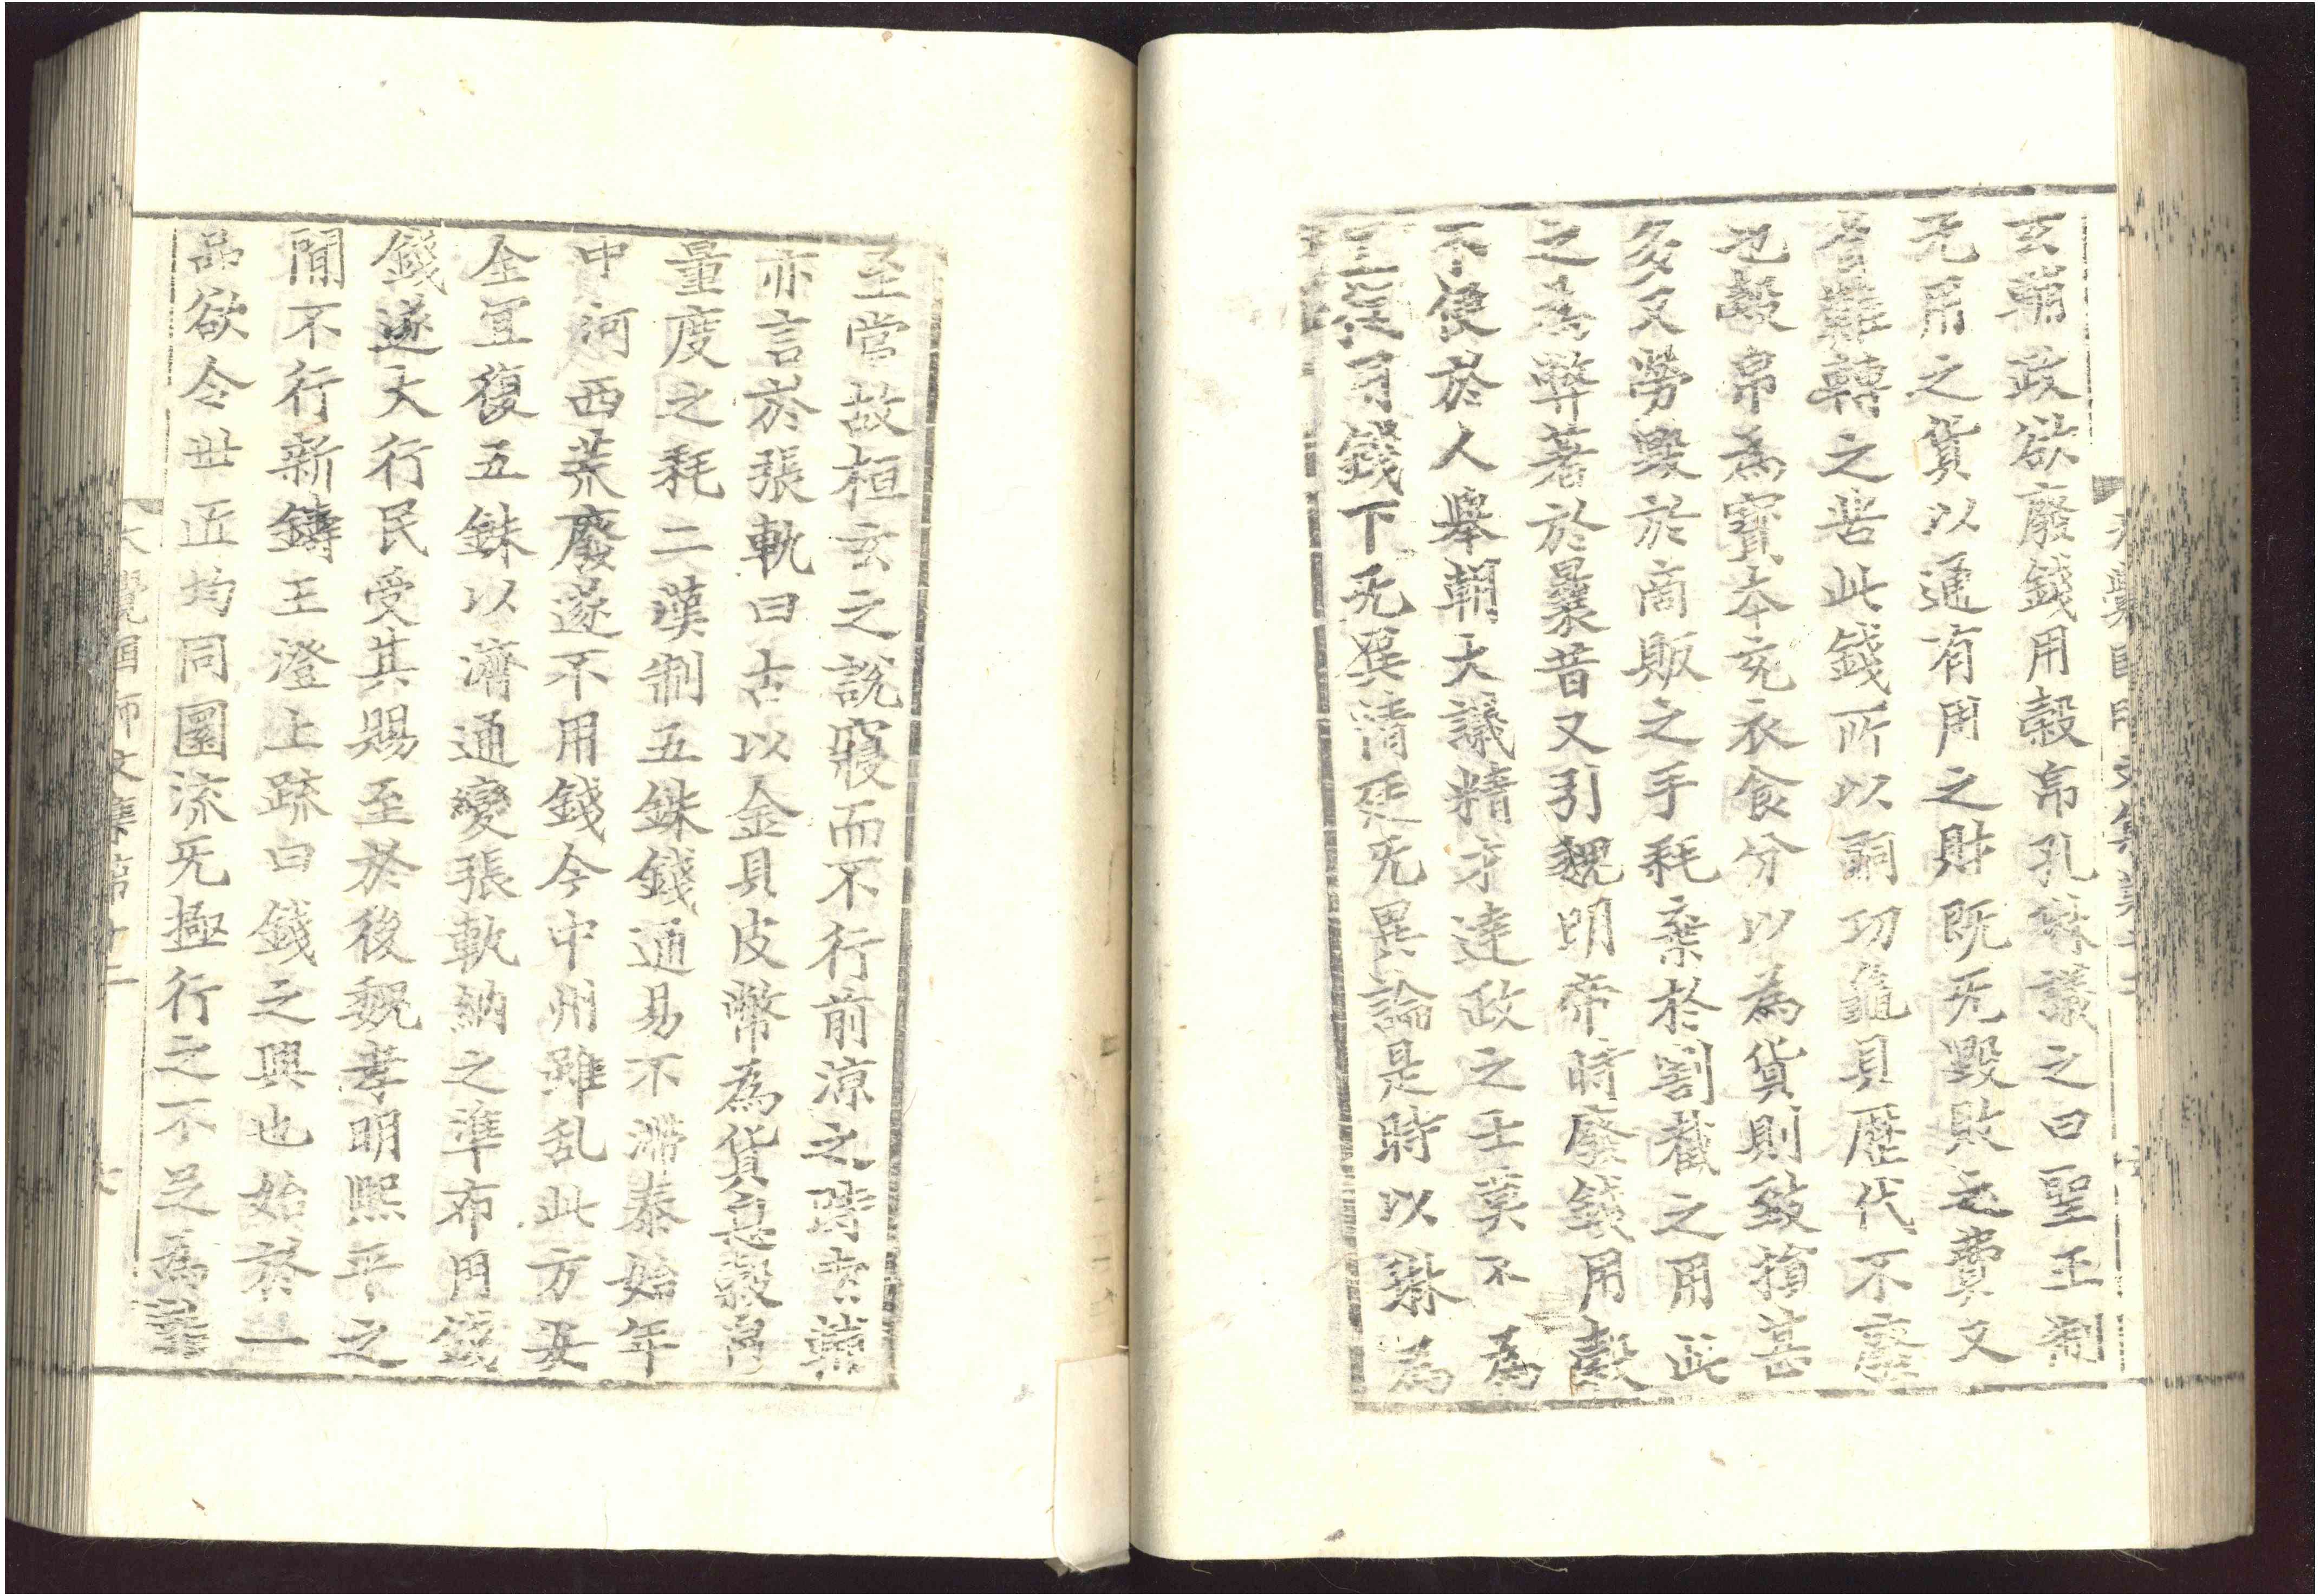 玄輔政欲廢錢用穀帛孔琳議之曰聖王制
无用之貨以通有用之財旣无毀敗之費又
省難轉之苦此錢所以嗣功龜貝歷代不廢
也穀帛為寶本充衣食分以為貨則致損甚
多又勞毀於商販之手耗棄於割截之用此
之為弊著於曩昔又引魏明帝時廢錢用穀
不便於人舉朝大議精才達政之士莫不為
宜復用錢下无異情廷无異論是時以琳為
大覺國師文集第十二
至當故桓玄之說寢而不行前涼之時索輔
亦言於張軌曰古以金貝皮幣為貨息穀帛
量度之耗二漢制五銖錢通易不滯泰始年
中河西荒廢遂不用錢今中州雖乱此方安
全宜復五銖以濟通變張軌納之準布用錢
錢遂大行民受其賜至於後魏孝明熙平之
閒不行新鑄王澄上疏曰錢之興也始於一
品欲令世匠均同圜流无極行之不足為
大覺國師文集第十二